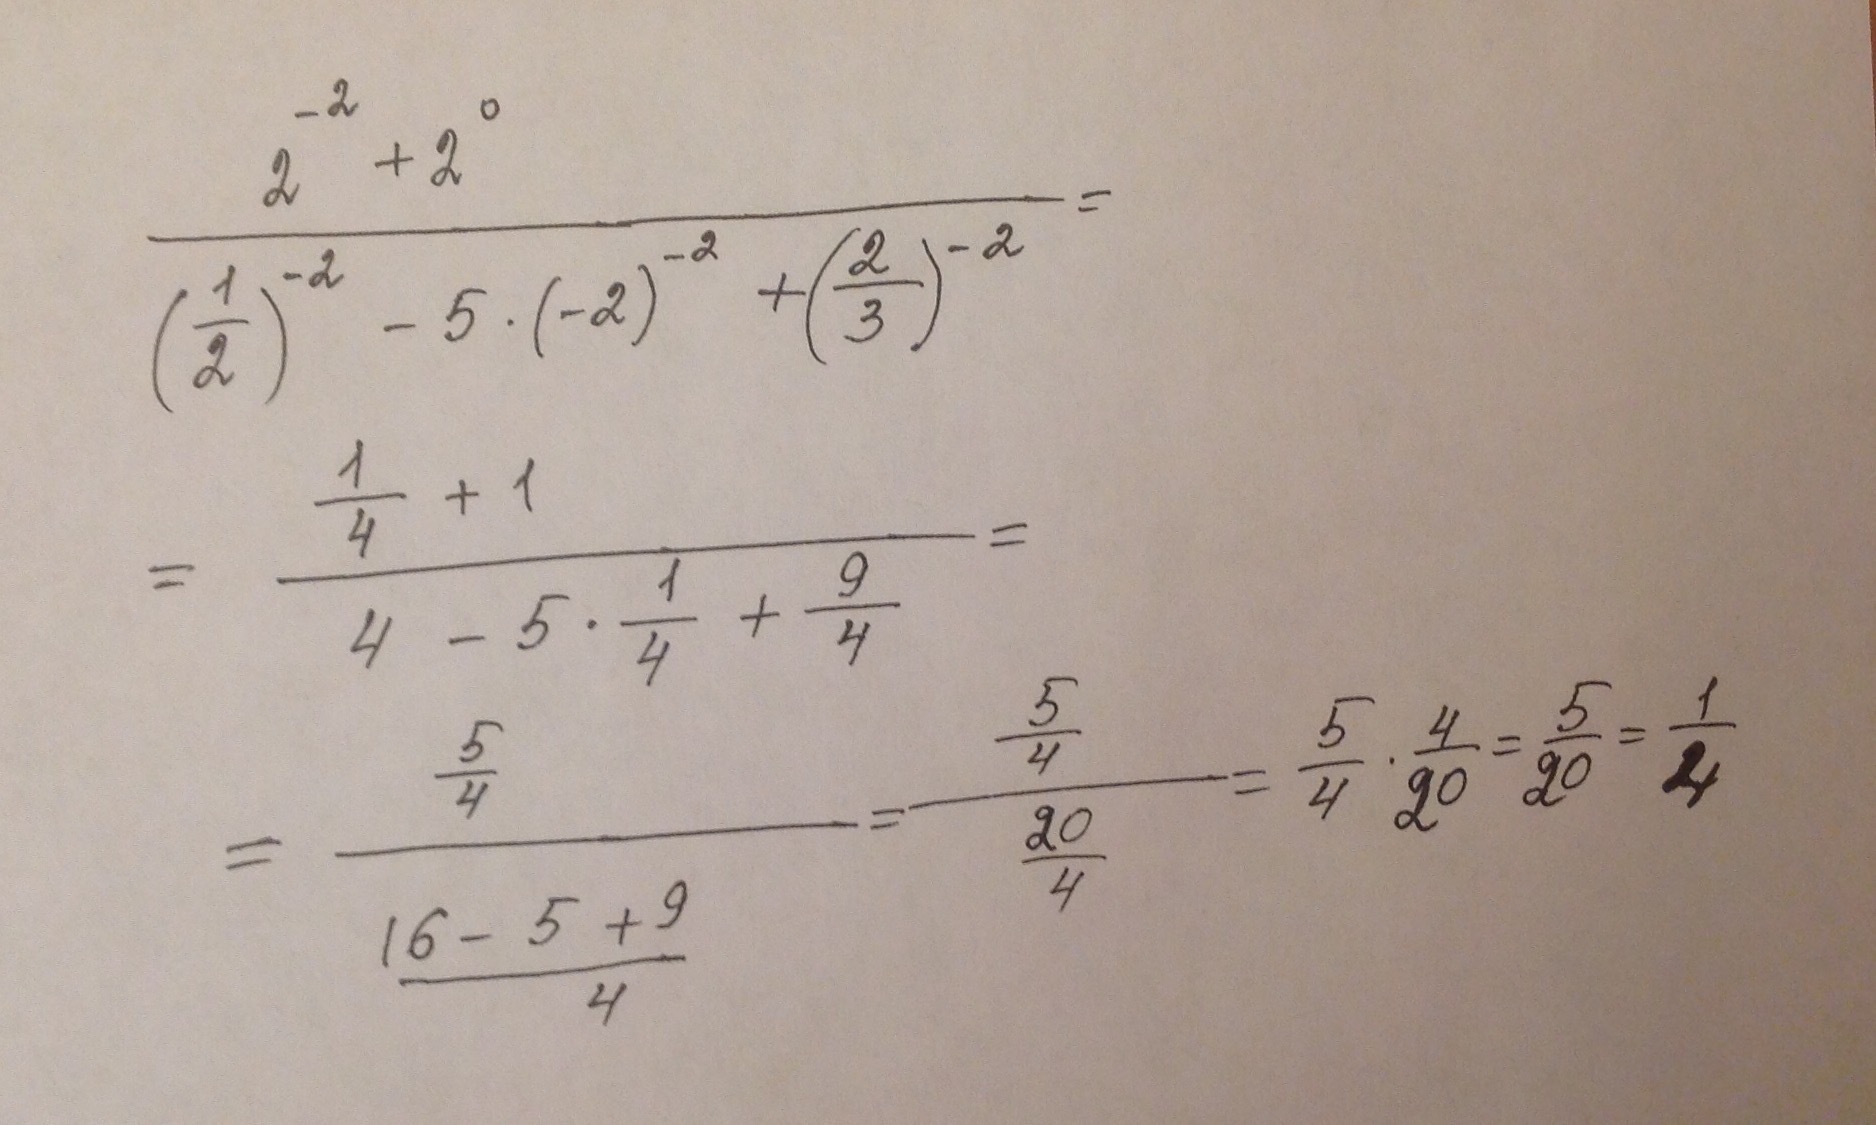 \frac{2^{-2} + 2^{0}}{\left(\frac{1}{2}\right)^{-2} - 5 \cdot (-2)^{-2} + \left(\frac{2}{3}\right)^{-2}} =
= \frac{\frac{1}{4} + 1}{4 - 5 \cdot \frac{1}{4} + \frac{9}{4}} =
= \frac{\frac{5}{4}}{\frac{16 - 5 + 9}{4}} = \frac{\frac{5}{4}}{\frac{20}{4}} = \frac{5}{4} \cdot \frac{4}{20} = \frac{5}{20} = \frac{1}{4}